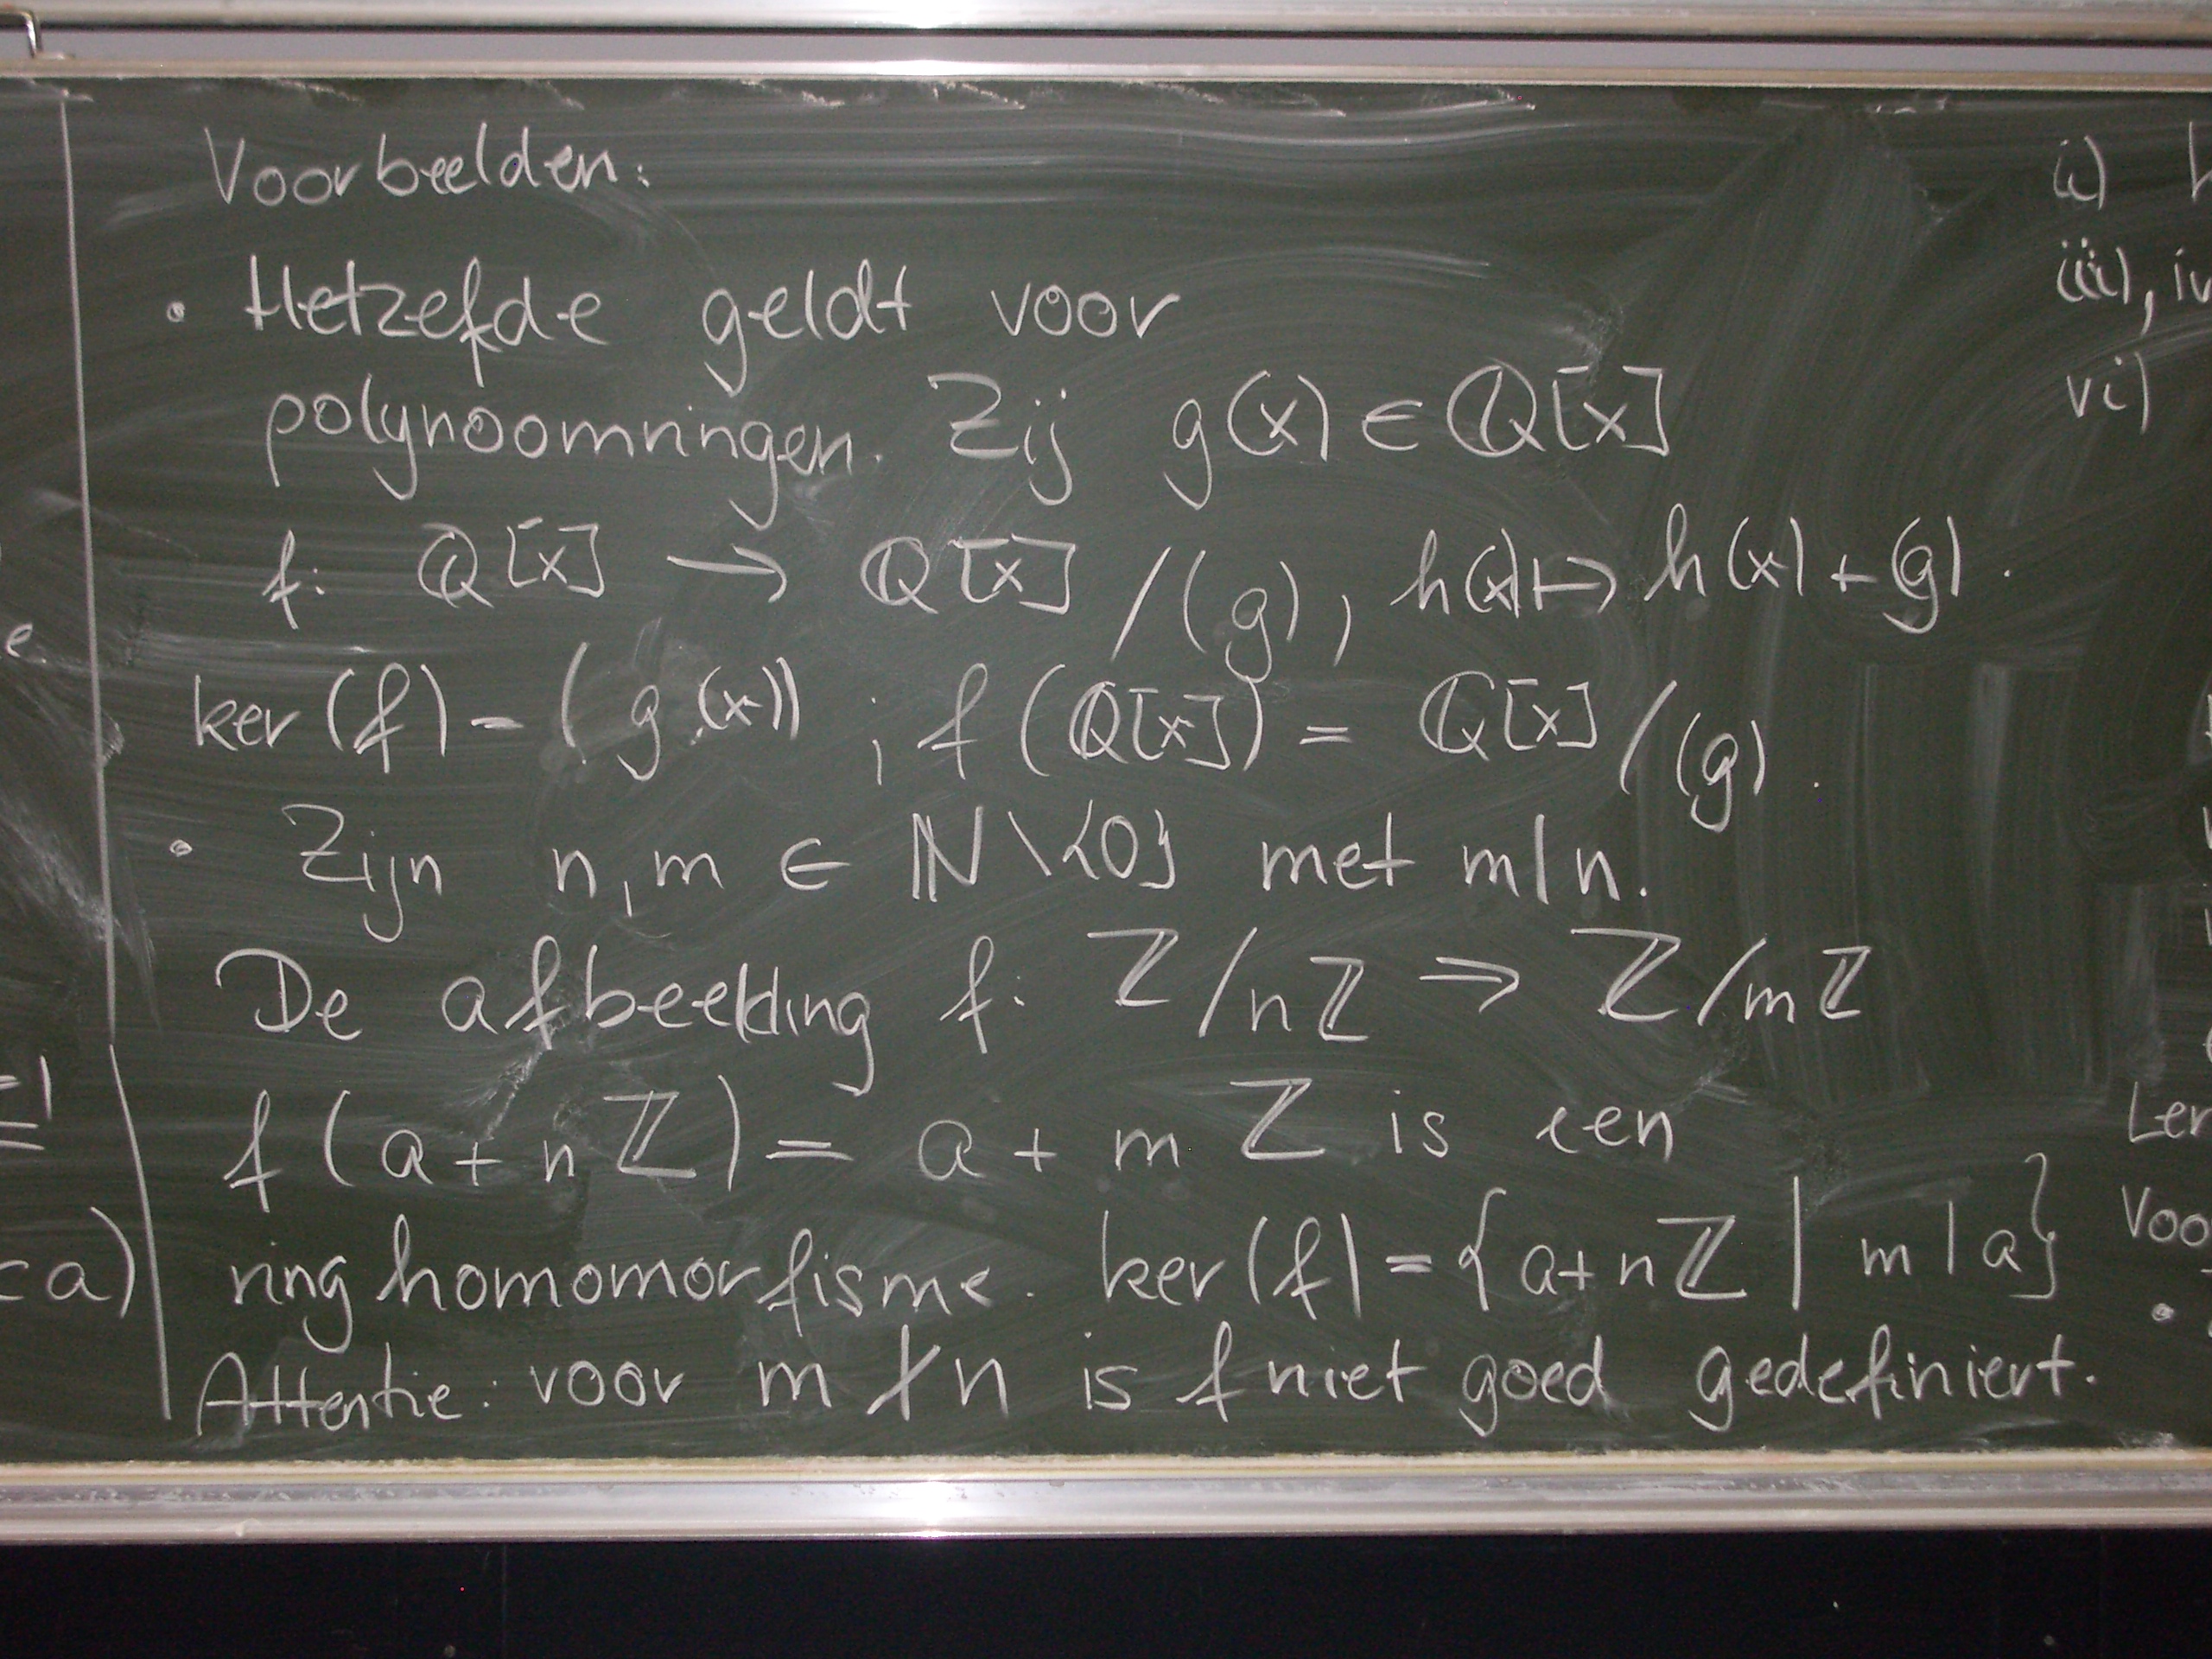 Voorbeelden:
• Hetzefde geldt voor
polynoomringen. Zij g(x) ∈ ℚ[x]
f: ℚ[x] → ℚ[x] /(g), h(x) ↦ h(x) + (g).
ker(f) = (g(x)) ; f(ℚ[x]) = ℚ[x] /(g).
• Zijn n, m ∈ ℕ \ {0} met m|n.
De afbeelding f: ℤ/nℤ → ℤ/mℤ
f(a+nℤ) = a + mℤ is een
ringhomomorfisme. ker(f) = {a+nℤ | m|a}
Attentie: voor m∤n is f niet goed gedefiniert.
e
=1
ca)
ii)
iii), iv
vi)
Ler
Voo
•